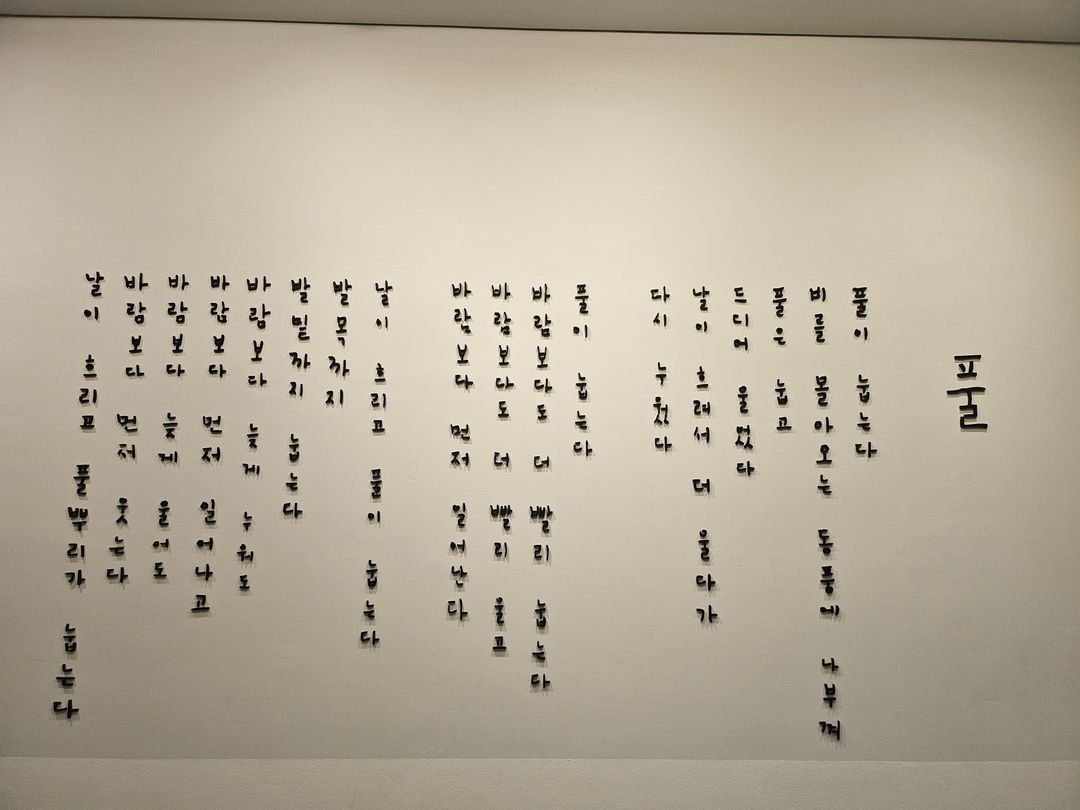 풀
풀이 눕는다
비를 몰아오는 동풍에 나부껴
풀은 눕고
드디어 울었다
날이 흐려서 더 울다가
다시 누웠다
풀이 눕는다
바람보다도 더 빨리 눕는다
바람보다도 더 빨리 울고
바람보다 먼저 일어난다
날이 흐리고 풀이 눕는다
발목까지
발밑까지 눕는다
바람보다 늦게 누워도
바람보다 먼저 일어나고
바람보다 늦게 울어도
바람보다 먼저 웃는다
날이 흐리고 풀뿌리가 눕는다